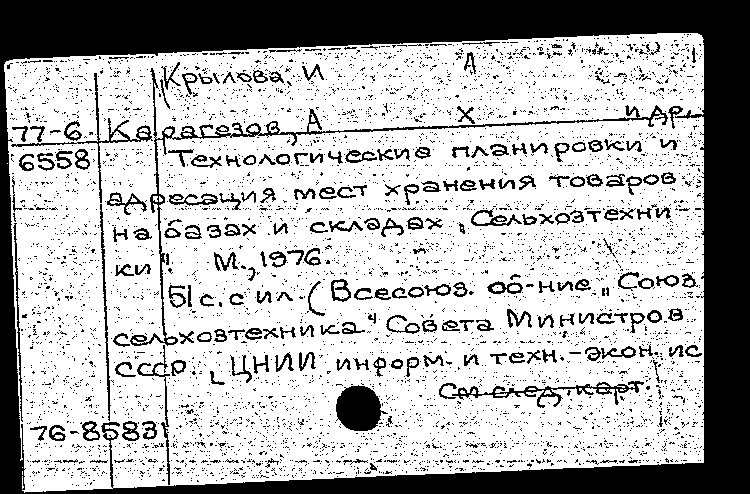 Крылова, И А
77-6 Карагезов, А Х и др.
6558 Технологические планировки и
адресация мест хранения товаров
на базах и складах „Сельхозтехни-
ки". М., 1976.
51 с. с ил. (Всесоюз. об-ние „Союз-
сельхозтехника" Совета Министров
СССР. ЦНИИ информ. и техн.-экон. ис
См след. карт.
76-85831